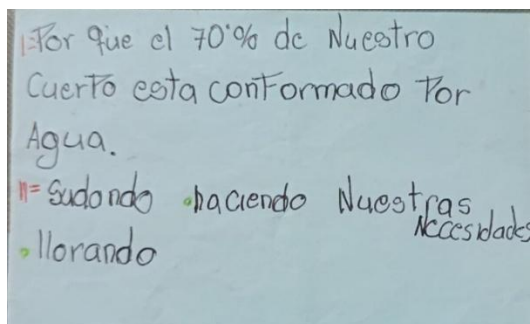 1=Por que el 70% de Nuestro
Cuerpo esta conformado Por
Agua.
n= Sudando •haciendo Nuestras Necesidades
•llorando